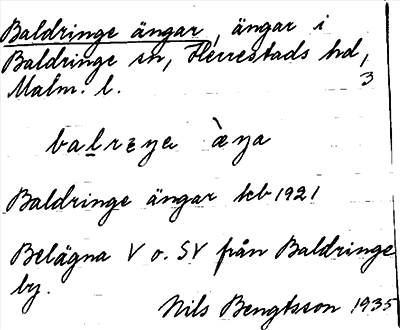 Baldringe ängar, ängar i
Baldringe sn, Herrestads hd,
Malm. l. 3
Baldringe ängar kb 1921
Belägna V o. SV från Baldringe
by.
Nils Bengtsson 1935